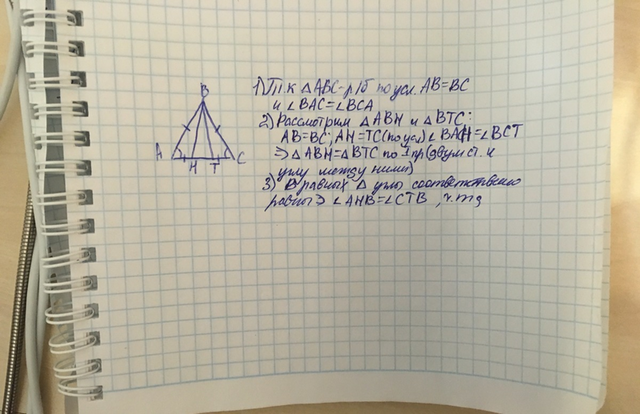 B
A
H
T
C
1) Т.к △ABC-р/б по усл. AB=BC
и ∠BAC=∠BCA
2) Рассмотрим △ABH и △BTC:
AB=BC; AH=TC(по усл) ∠BAH=∠BCT
⇒ △ABH=△BTC по 1 пр(двум ст. и
углу между ними)
3) В равных △ углы соответственно
равны ⇒ ∠AHB=∠CTB, ч.т.д